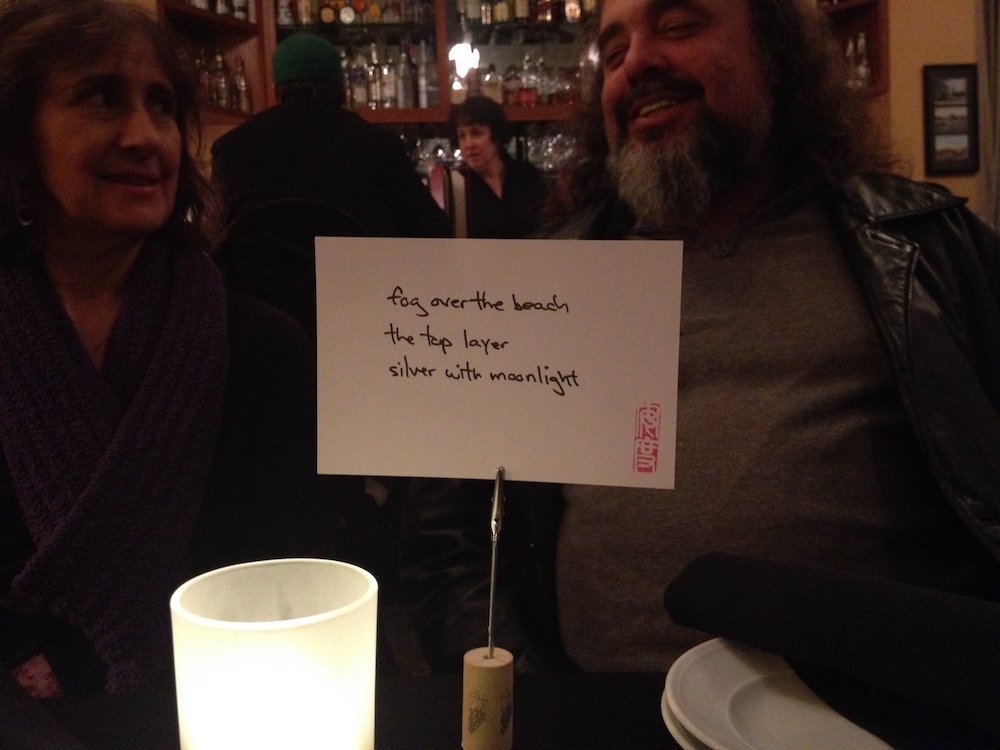 fog over the beach
the top layer
silver with moonlight